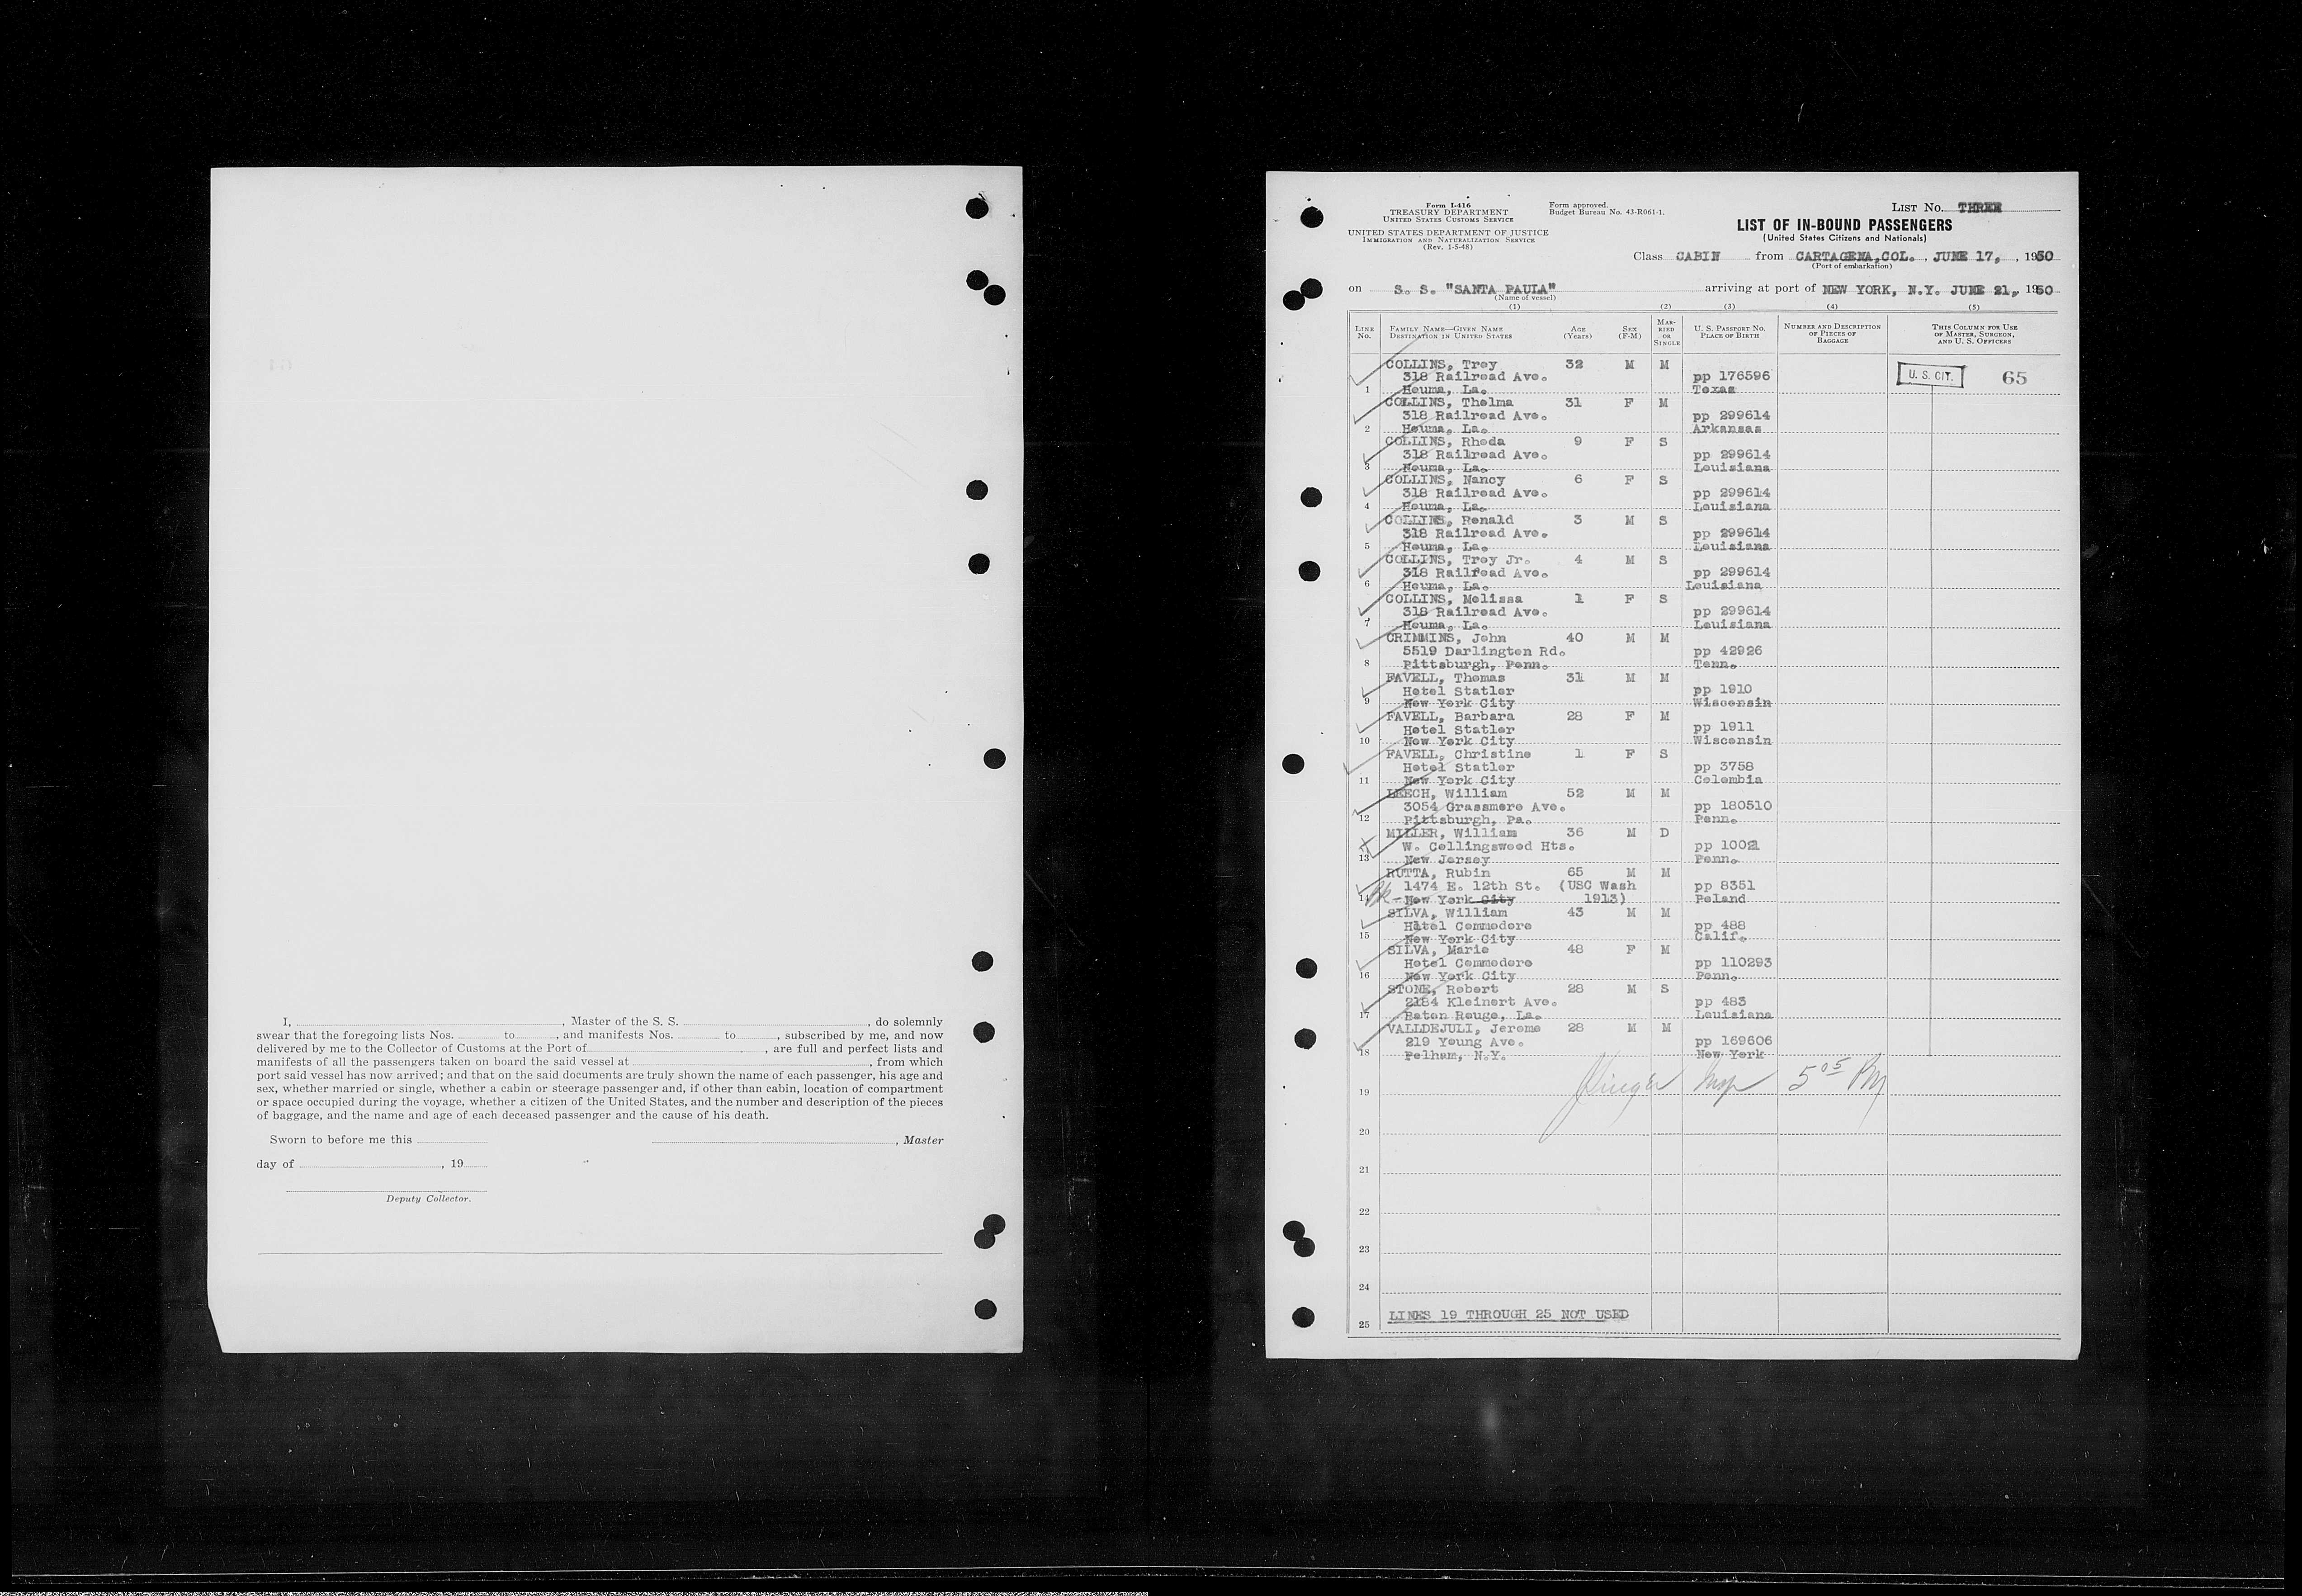 I, , Master of the S. S. , do solemnly
swear that the foregoing lists Nos. to , and manifests Nos. to , subscribed by me, and now
delivered by me to the Collector of Customs at the Port of , are full and perfect lists and
manifests of all the passengers taken on board the said vessel at , from which
port said vessel has now arrived; and that on the said documents are truly shown the name of each passenger, his age and
sex, whether married or single, whether a cabin or steerage passenger and, if other than cabin, location of compartment
or space occupied during the voyage, whether a citizen of the United States, and the number and description of the pieces
of baggage, and the name and age of each deceased passenger and the cause of his death.
Sworn to before me this , Master
day of , 19
Deputy Collector.
Form I-416
TREASURY DEPARTMENT
UNITED STATES CUSTOMS SERVICE
UNITED STATES DEPARTMENT OF JUSTICE
IMMIGRATION AND NATURALIZATION SERVICE
(Rev. 1-5-48)
Form approved.
Budget Bureau No. 43-R061-1.
LIST No. THREE
LIST OF IN-BOUND PASSENGERS
(United States Citizens and Nationals)
Class CABIN from CARTAGENA,COL. , JUNE 17, , 1950
(Port of embarkation)
on S. S. "SANTA PAULA" arriving at port of NEW YORK, N.Y. JUNE 21, 1950
(Name of vessel)
(1) (2) (3) (4) (5)
LINE No. FAMILY NAME—GIVEN NAME DESTINATION IN UNITED STATES AGE (Years) SEX (F-M) MARRIED OR SINGLE U. S. PASSPORT No. PLACE OF BIRTH NUMBER AND DESCRIPTION OF PIECES OF BAGGAGE THIS COLUMN FOR USE OF MASTER, SURGEON, AND U. S. OFFICERS
COLLINS, Troy 32 M M
318 Railroad Ave. pp 176596 U. S. CIT. 65
1 Houma, La. Texas
COLLINS, Thelma 31 F M
318 Railroad Ave. pp 299614
2 Houma, La. Arkansas
COLLINS, Rhoda 9 F S
318 Railroad Ave. pp 299614
3 Houma, La. Louisiana
COLLINS, Nancy 6 F S
318 Railroad Ave. pp 299614
4 Houma, La. Louisiana
COLLINS, Ronald 3 M S
318 Railroad Ave. pp 299614
5 Houma, La. Louisiana
COLLINS, Troy Jr. 4 M S
318 Railroad Ave. pp 299614
6 Houma, La. Louisiana
COLLINS, Melissa 1 F S
318 Railroad Ave. pp 299614
7 Houma, La. Louisiana
CRIMMINS, John 40 M M
5519 Darlington Rd. pp 42926
8 Pittsburgh, Penn. Tenn.
FAVELL, Thomas 31 M M
Hotel Statler pp 1910
9 New York City Wisconsin
FAVELL, Barbara 28 F M
Hotel Statler pp 1911
10 New York City Wisconsin
FAVELL, Christine 1 F S
Hotel Statler pp 3758
11 New York City Colombia
LEECH, William 52 M M
3054 Grassmere Ave. pp 180510
12 Pittsburgh, Pa. Penn.
MILLER, William 36 M D
W. Collingswood Hts. pp 10021
13 New Jersey Penn.
RUTTA, Rubin 65 M M
1474 E. 12th St. (USC Wash pp 8351
14 New York City 1913) Poland
SILVA, William 43 M M
Hotel Commodore pp 488
15 New York City Calif.
SILVA, Marie 48 F M
Hotel Commodore pp 110293
16 New York City Penn.
STONE, Robert 28 M S
2184 Kleinert Ave. pp 483
17 Baton Rouge, La. Louisiana
VALLDEJULI, Jerome 28 M M
219 Young Ave. pp 169606
18 Pelham, N.Y. New York
19 Insp 5 05 PM
20
21
22
23
24
LINES 19 THROUGH 25 NOT USED
25